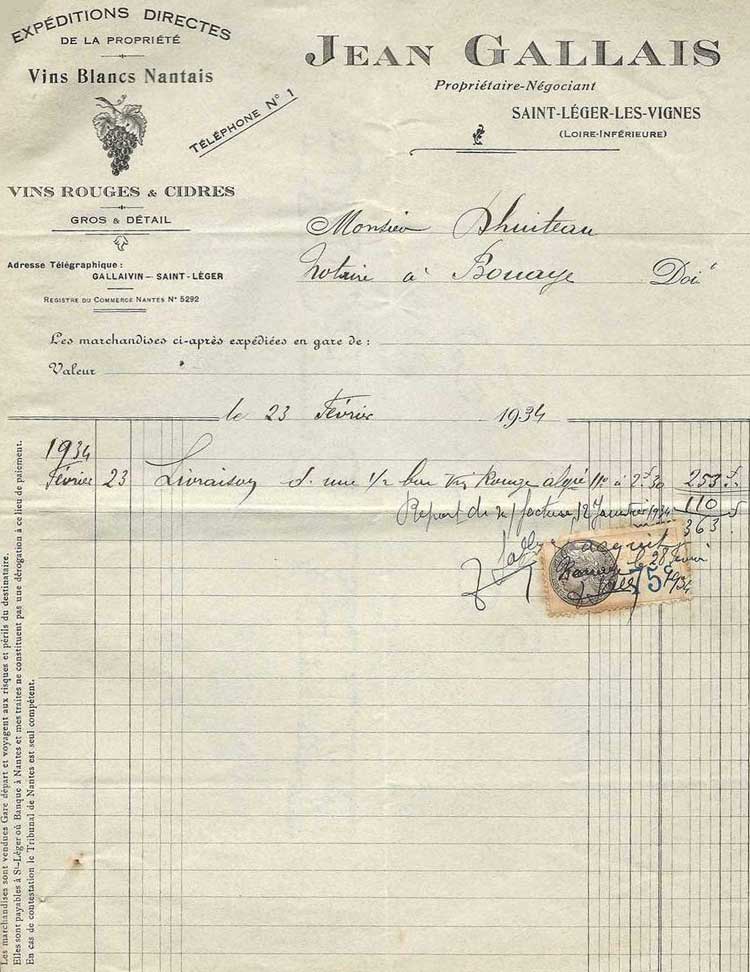 EXPÉDITIONS DIRECTES
DE LA PROPRIÉTÉ
Vins Blancs Nantais
TÉLÉPHONE N° 1
VINS ROUGES & CIDRES
GROS & DÉTAIL
Adresse Télégraphique :
GALLAIVIN — SAINT-LÉGER
REGISTRE DU COMMERCE NANTES N° 5292
JEAN GALLAIS
Propriétaire-Négociant
SAINT-LÉGER-LES-VIGNES
(LOIRE-INFÉRIEURE)
Monsieur
Notaire à Bouaye Doit
Les marchandises ci-après expédiées en gare de :
Valeur
le 23 Février 1934
1934
Février 23 Livraison d'une 1/2 Rouge 11° à 2f30 253f
Report de facture 12 Janvier 1934 110
363
acquit
Bouaye le 28
1934
75c
Les marchandises sont vendues Gare départ et voyagent aux risques et périls du destinataire.
Elles sont payables à St-Léger où Banque à Nantes et mes traites ne constituent pas une dérogation à ce lieu de paiement.
En cas de contestation le Tribunal de Nantes est seul compétent.